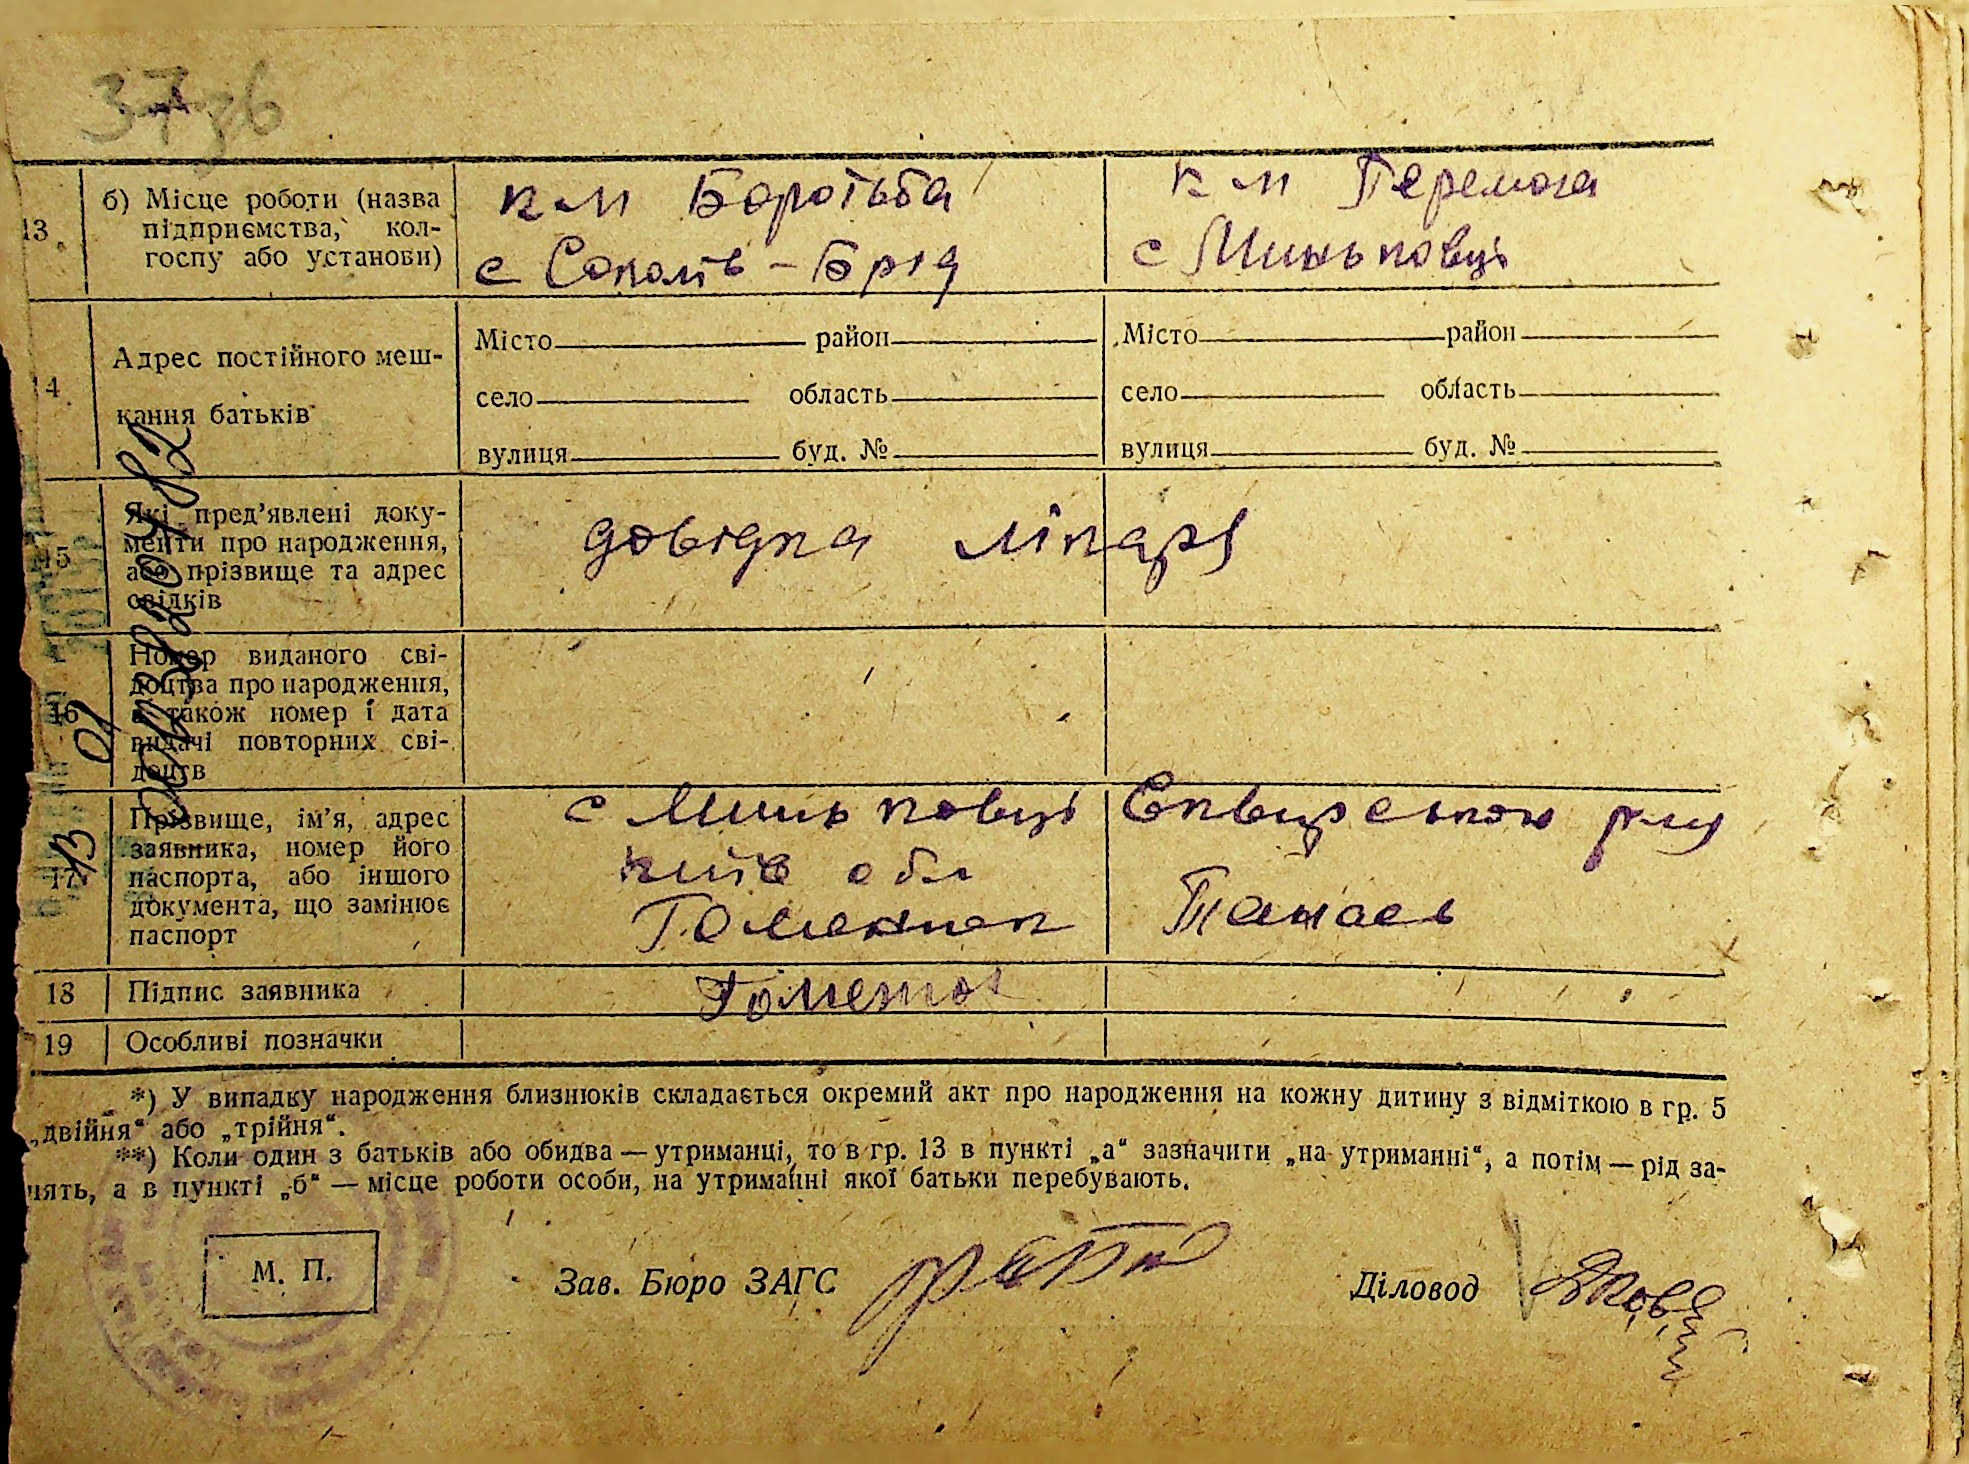 37 зв
13
б) Місце роботи (назва
підприємства, кол-
госпу або установи)
к м Боротьба
с Соколів-Брід
к м Перемога
с Миньковці
14
Адрес постійного меш-
кання батьків
Місто район
село область
вулиця буд. №
Місто район
село область
вулиця буд. №
15
Які пред’явлені доку-
менти про народження,
або прізвище та адрес
свідків
довідка лікаря
16
Номер виданого сві-
доцтва про народження,
а також номер і дата
видачі повторних сві-
доцтв
17
Прізвище, ім’я, адрес
заявника, номер його
паспорта, або іншого
документа, що замінює
паспорт
с Миньковці Сквирського р-ну
Київ обл
Гоменюк Танась
18
Підпис заявника
19
Особливі позначки
*) У випадку народження близнюків складається окремий акт про народження на кожну дитину з відміткою в гр. 5
„двійня“ або „трійня“.
**) Коли один з батьків або обидва — утриманці, то в гр. 13 в пункті „а“ зазначити „на утриманні“, а потім — рід за-
нять, а в пункті „б“ — місце роботи особи, на утриманні якої батьки перебувають.
М. П.
Зав. Бюро ЗАГС
Діловод